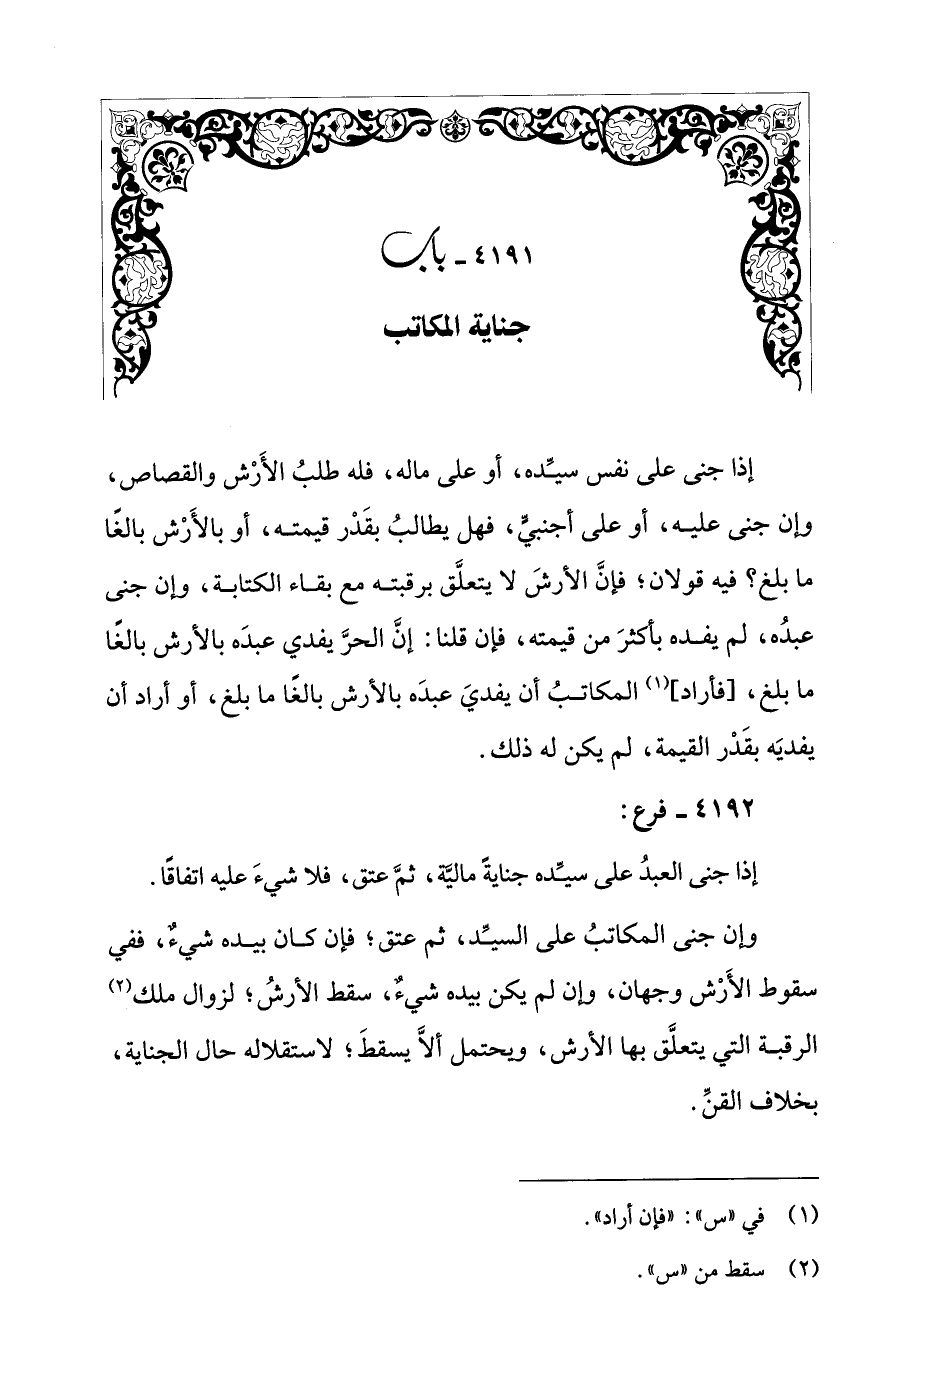 ٤١٩١ ـ باب
جناية المكاتب
إذا جنى على نفس سيِّده، أو على ماله، فله طلبُ الأَرْش والقصاص،
وإن جنى عليه، أو على أجنبيٍّ، فهل يطالبُ بقَدْر قيمته، أو بالأَرْش بالغًا
ما بلغ؟ فيه قولان؛ فإنَّ الأرشَ لا يتعلَّق برقبته مع بقاء الكتابة، وإن جنى
عبدُه، لم يفده بأكثرَ من قيمته، فإن قلنا: إنَّ الحرَّ يفدي عبدَه بالأرش بالغًا
ما بلغ، [فأراد](١) المكاتبُ أن يفديَ عبدَه بالأرش بالغًا ما بلغ، أو أراد أن
يفديَه بقَدْر القيمة، لم يكن له ذلك.
٤١٩٢ ـ فرع:
إذا جنى العبدُ على سيِّده جنايةً ماليَّة، ثمَّ عتق، فلا شيءَ عليه اتفاقًا.
وإن جنى المكاتبُ على السيِّد، ثم عتق؛ فإن كان بيده شيءٌ، ففي
سقوط الأَرْش وجهان، وإن لم يكن بيده شيءٌ، سقط الأرشُ؛ لزوال ملك(٢)
الرقبة التي يتعلَّق بها الأرش، ويحتمل ألاَّ يسقطَ؛ لاستقلاله حال الجناية،
بخلاف القنِّ.
(١) في «س»: «فإن أراد».
(٢) سقط من «س».